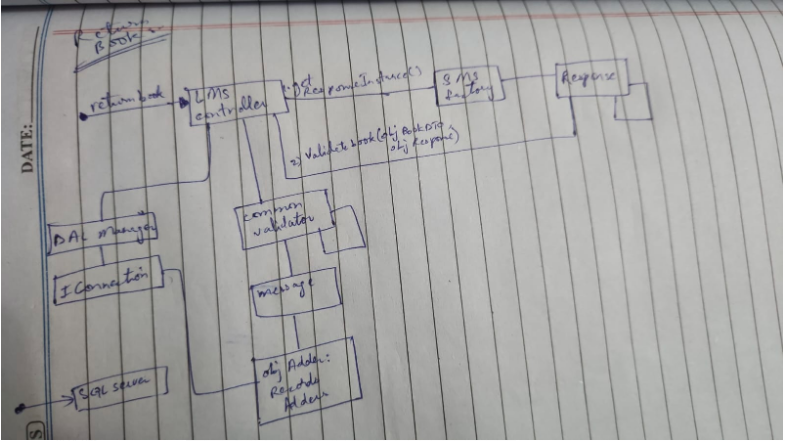 Return
Book
returnbook
LMS
controller
ResponseInstance()
SMS
factory
Response
2) Validatebook(obj BookDTO,
obj Response)
DATE:
common
validator
DAL Manager
I Connection
message
obj Adder:
Records
Adders
SQL server
S